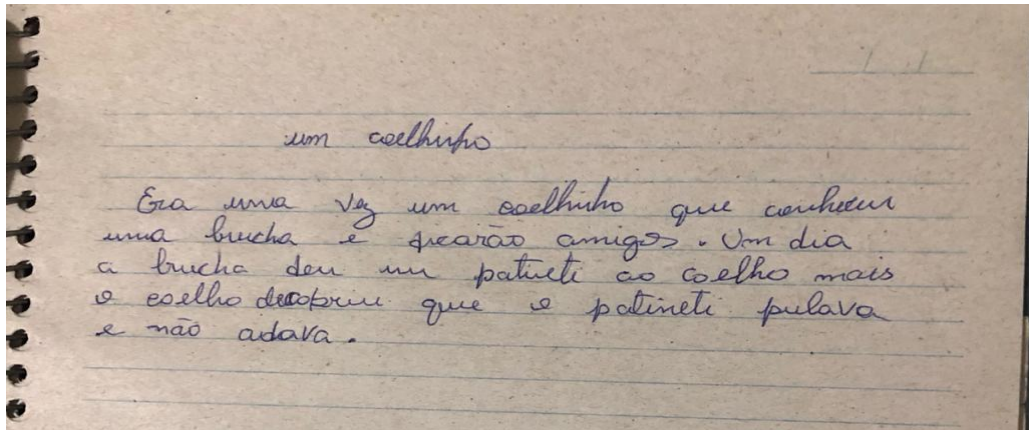 um coelhinho
Era uma vez um coelhinho que conheceu
uma brucha e ficarão amigos. Um dia
a brucha deu um patineti ao coelho mais
o coelho decobriu que o patineti pulava
e não adava.